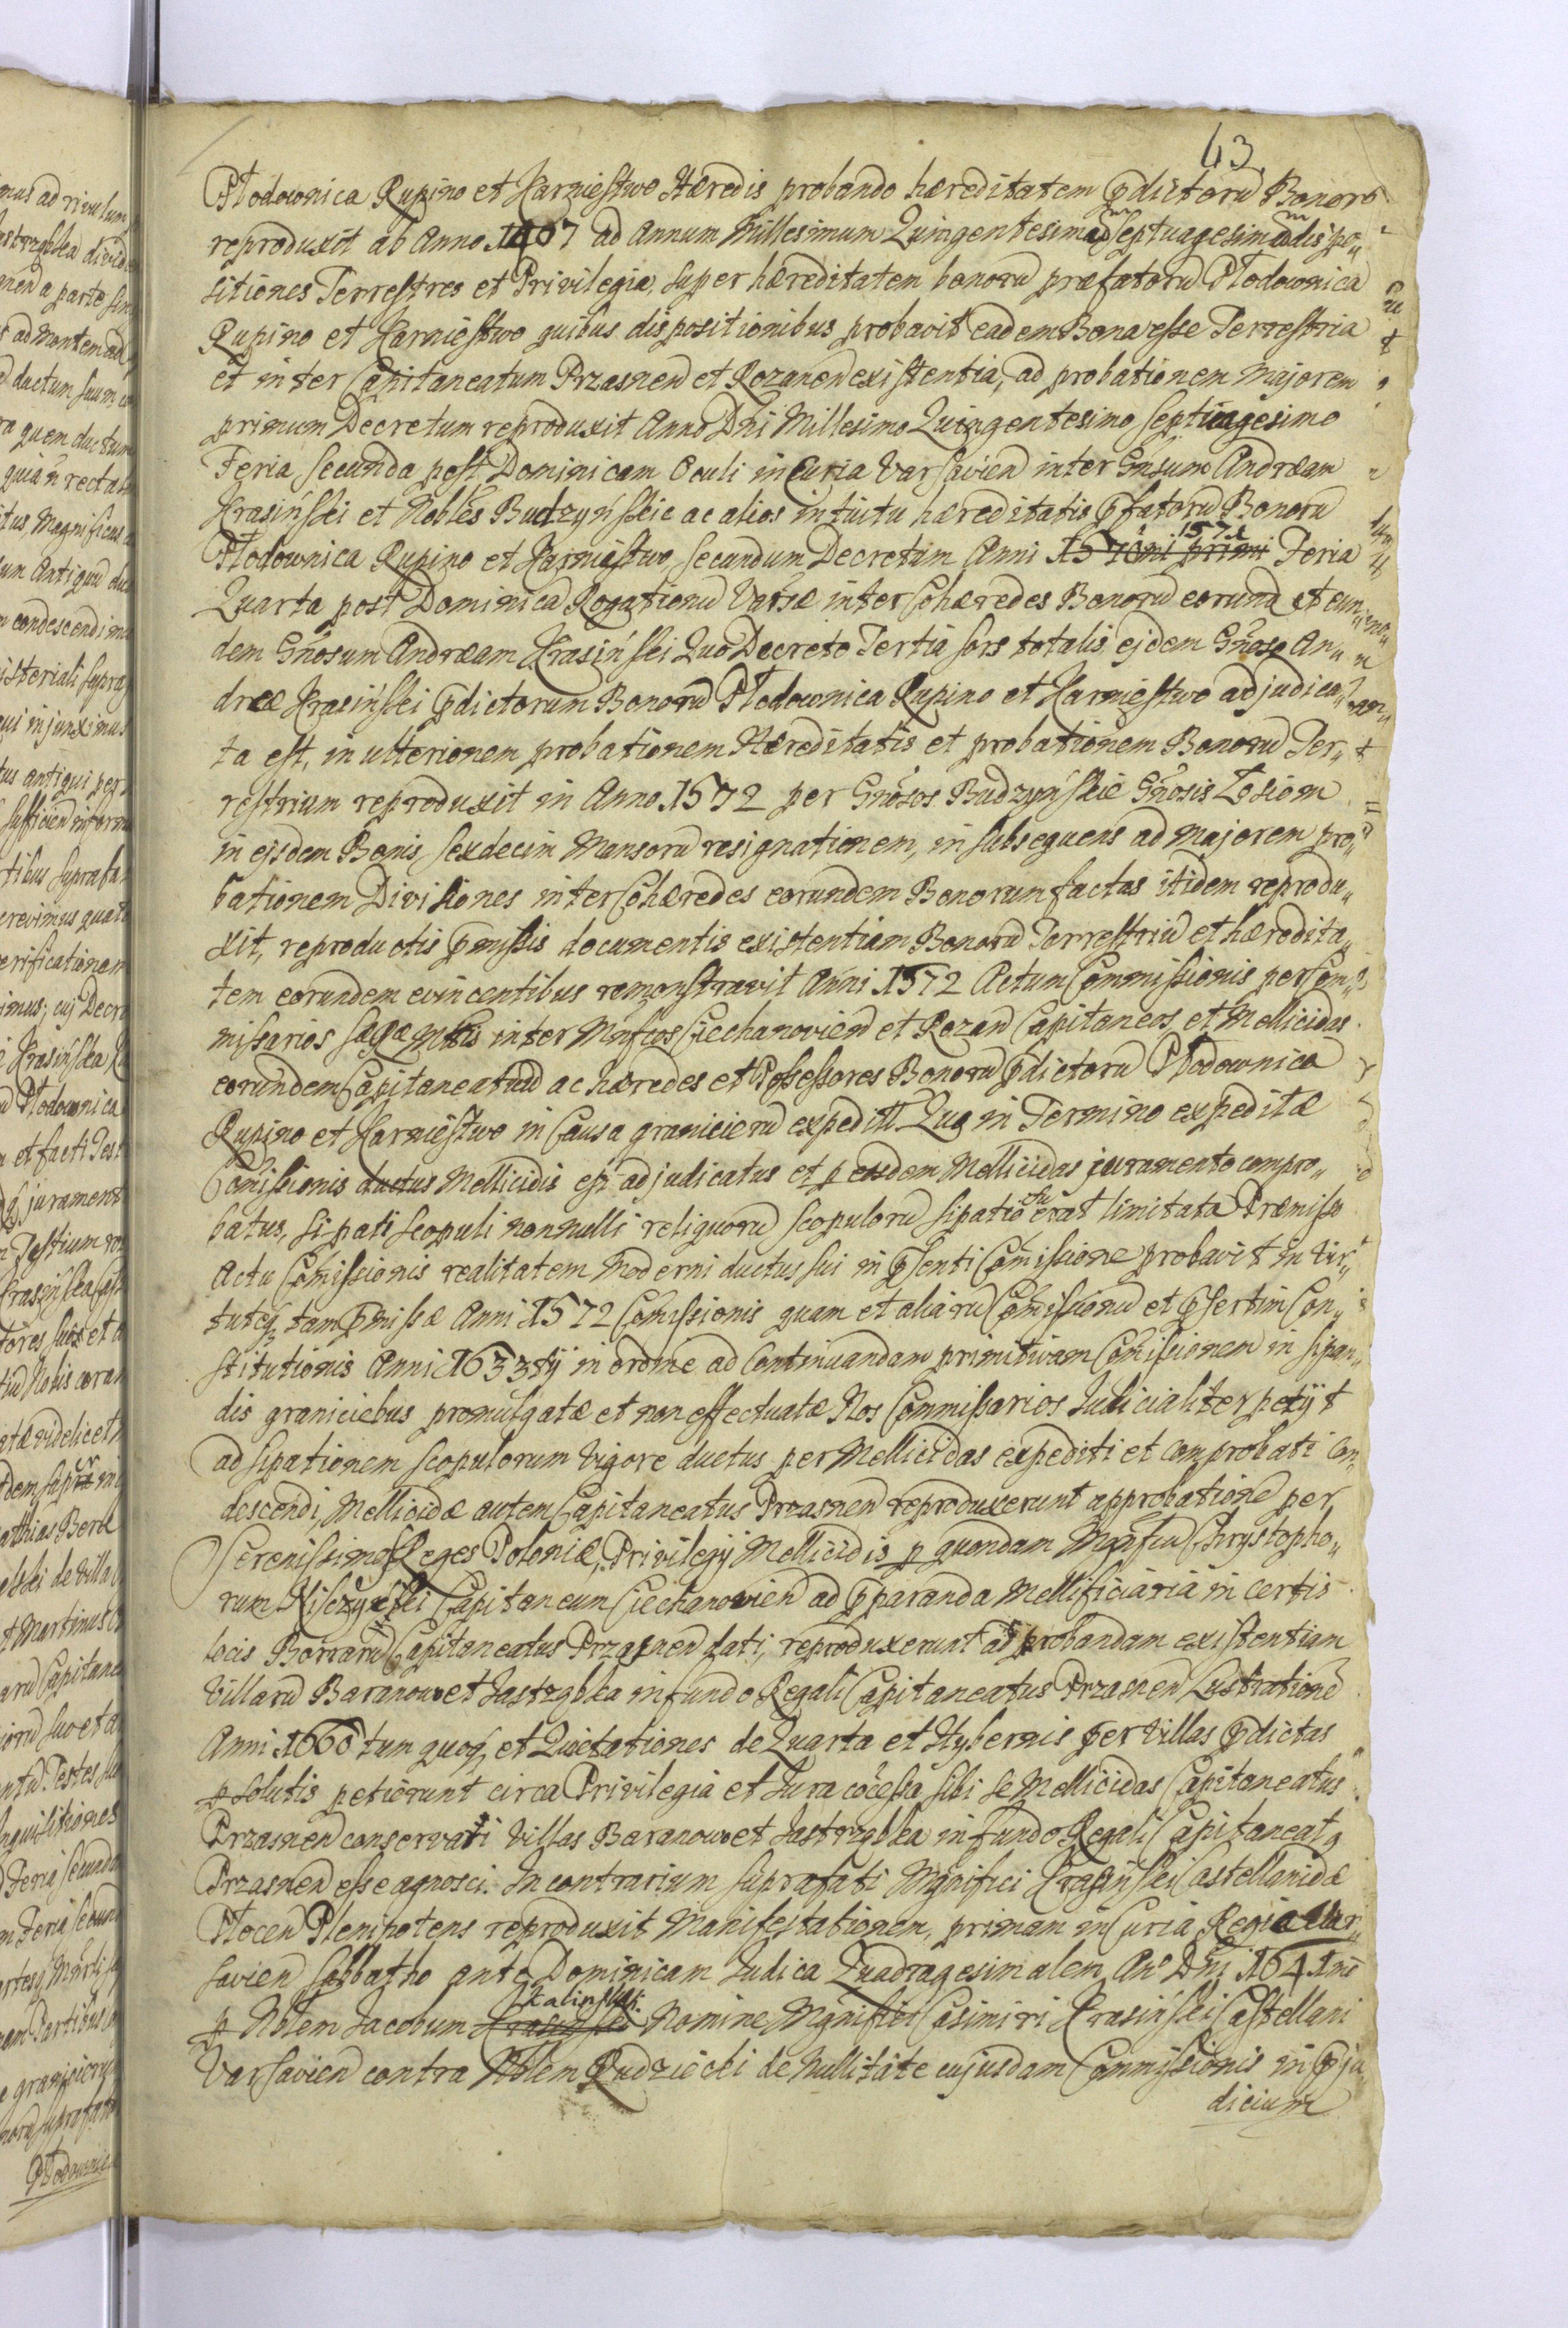 43
Płodownica Rupino et Karniestwo Hæredis probando hæreditatem p̄dictorū Bonorū
reproduxit ab Anno 1467 ad Annum Millesimum Quingentesimum Septuagesimum dispo„
sitiones Terrestres et Privilegia, super hæreditatem bonorū præfatorū Płodownica
Rupino et Karniestwo quibus dispositionibus probavit eadem Bona esse Terrestria
et inter Capitaneatum Przasnen et Rozanen existentia, ad probationem Majorem
primum Decretum reproduxit Anno Dn̄i Millesimo Quingentesimo septuagesimo
Feria secunda post Dominicam Oculi in Curia Varsavien inter Gn̄sum Andræam
Krasiński et Nobles Budzyńskie ac alios intuitu hæreditatis p̄fatorū Bonorū
Płodownica Rupino et Karniestwo, secundum Decretum Anni 1571 Feria
Quarta post Dominicā Rogationū Varsæ inter Cohæredes Bonorū eorund et eun„
dem Gn̄osum Andræam Krasiński Quo Decreto Tertia sors totalis ejdem Gn̄oso An„
dreæ Krasiński p̄dictorum Bonorū Płodownica Rupino et Karniestwo adjudica„
ta est, in ulteriorem probationem Hæreditatis et probationem Bonorū Ter„
restrium reproduxit in Anno 1572 per Gn̄osos Budzyńskie Gn̄osis Łosiom
in ejsdem Bonis, sexdecim Mansorū resignationem, in subsequens ad majorem pro„
bationem Divisiones inter Cohæredes eorundem Bonorum factas itidem reprodu„
xit, reproductis p̄missis documentis existentiam Bonorū Terrestriū et hæredita„
tem eorundem evincentibus remonstravit Anni 1572 Actum Commissionis per Com„
missarios inter Mnfcos Ciechanovien et Rozan Capitaneos et Mellicidas
eorundem Capitaneatuū ac hæredes et Possessores Bonorū p̄dictorū Płodownica
Rupino et Karniestwo in Causa granicierū expediti Qua in Termino expeditæ
Comissionis ductus Mellicidis est adjudicatus et p eosdem Mellicidas juramento compro„
batus, sipati scopuli nonnulli reliquorū scopulorū sipatio erat limitata Præmisso
Actu Comissionis realitatem Moderni ductus sui in p̄senti Comissione probavit in Vir„
tuteq tam p̄missæ Anni 1572 Comissionis quam et aliarū Comissionū et p̄sertim Con„
stitutionis Anni 1633tÿ in ordine ad Continuandam primitivam Comissionem in sipan„
dis graniciebus promulgatæ et non effectuatæ Nos Commissarios Judicialiter petÿt
ad sipationem scopulorum vigore ductus per Mellicidas expediti et comprobati Con„
descendi, Mellicidæ autem Capitaneatus Przasnen reproduxerunt approbationē per
Serenissimos Reges Poloniæ, Privilegÿ Mellicidis p quondam Mgnfcū Chrystopho„
rum Capitaneum Ciechanovien ad p̄paranda Mellificiaria in certis
locis Borrarū Capitaneatus Przasnen dati, reproduxerunt ad probandam existentiam
Villarū Baranowo et Jastrząbka in fundo Regali Capitaneatus Przasnen Lustrationē
Anni 1660 tum quoq, et Quietationes de Quarta et Hybernis per Villas p̄dictas
p solutis petierunt circa Privilegia et Jura cōcessa sibi se Mellicidas Capitaneatus
Przasnen conservari Villas Baranowo et Jastrząbka in fundo Regali Capitaneatq
Przasnen esse agnosci. In contrarium suprafati Mgnifici Krasiński Castellanidæ
Płocen Plenipotens reproduxit Manifestationem, primam in Curia Regia Var„
savien Sabbatho ante Dominicam Judica Quadragesimalem Anº Dn̄i 1641mē
p Nblem Jacobum Kalinski Nomine Mgnifici Casimiri Krasiński Castellani
Varsavien contra Nblem Rudziecki de Nullitate cujusdam Commissionis in p̄ju
dicium